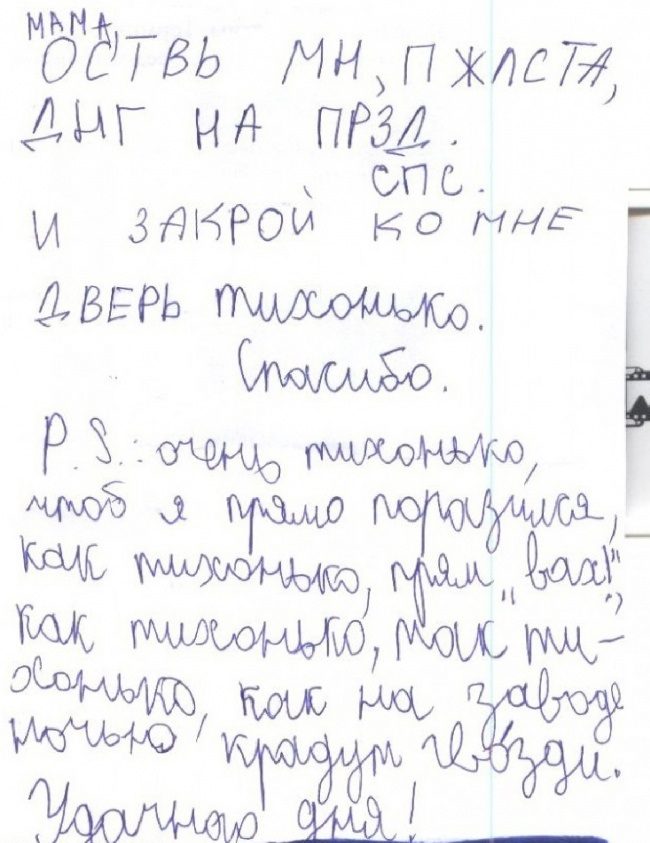 МАМА,
ОСТВЬ МН, ПЖЛСТА,
ДНГ НА ПРЗД.
СПС.
И ЗАКРОЙ КО МНЕ
ДВЕРЬ тихонько.
Спасибо.
P.S.: очень тихонько,
чтоб я прямо поразился,
как тихонько, прям „вах!",
как тихонько, так ти-
хонько, как на заводе
ночью крадут гвозди.
Удачного дня!